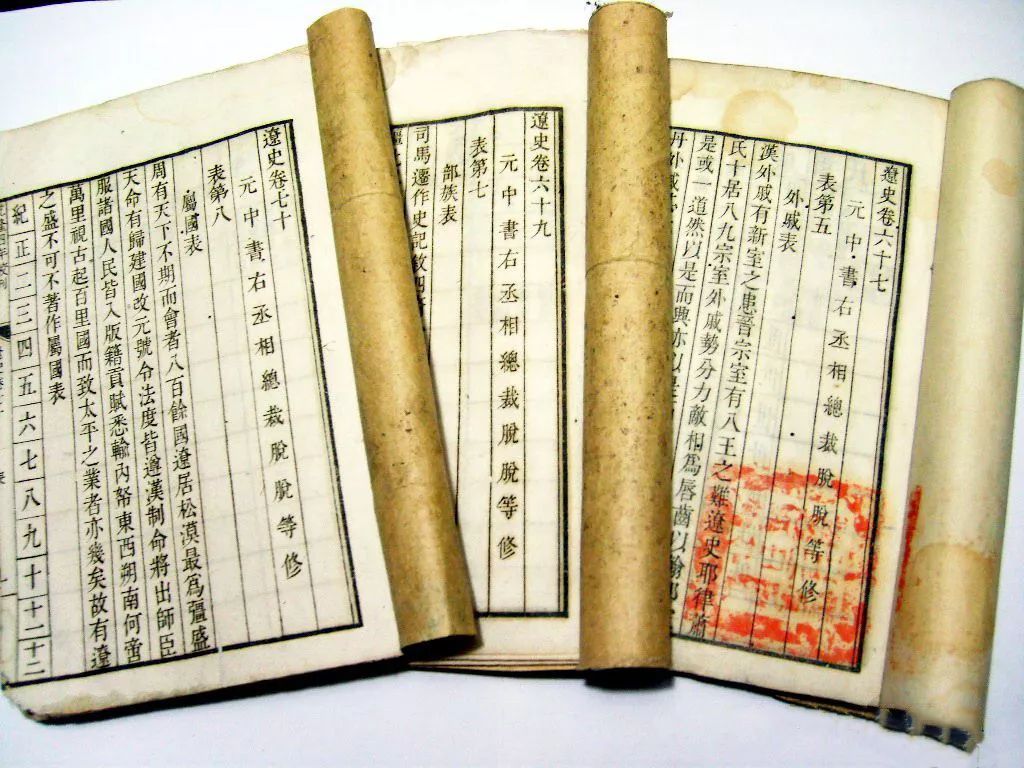 遼史卷六十七
元中書右丞相總裁脫脫等修
表第五
外戚表
漢外戚有新室之患晉宗室有八王之難遼史耶律蕭
氏十居八九宗室外戚勢分力敵相爲唇齒以翰邦
是或一道然以是而興亦以是
丹外戚
遼史卷六十九
元中書右丞相總裁脫脫等修
表第七
部族表
司馬遷作史記敘四
遼史卷七十
元中書右丞相總裁脫脫等修
表第八
屬國表
周有天下不期而會者八百餘國遼居松漠最爲彊盛
天命有歸建國改元號令法度皆遵漢制命將出師臣
服諸國人民皆入版籍貢賦悉輸內帑東西朔南何啻
萬里視古起百里國而致太平之業者亦幾矣故有遼
之盛不可不著作屬國表
紀正二三四五六七八九十十一十二